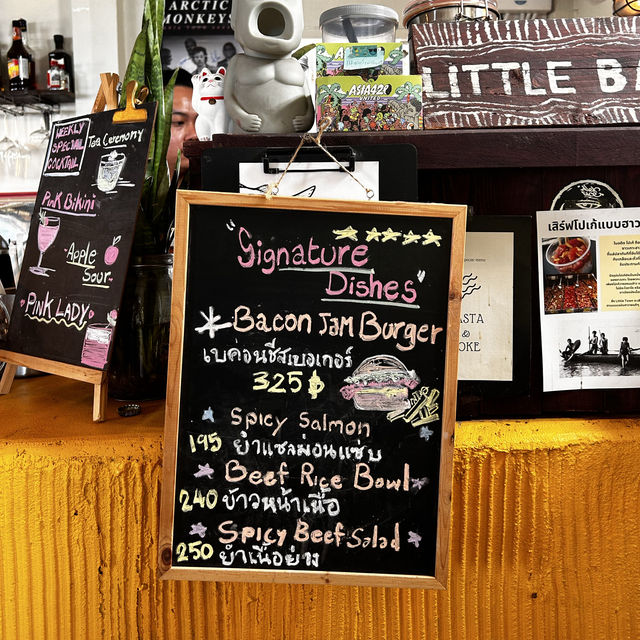 ARCTIC
MONKEYS
WEEKLY
SPECIAL
COCKTAIL
Tea Ceremony
Pink Bikini
Apple
Sour
PINK LADY
ASIA420
UNITED
LITTLE BA
"Signature
Dishes"
Bacon Jam Burger
เบค่อนชีสเบอเกอร์
325฿
Spicy Salmon
195 ยำแซลม่อนแซ่บ
Beef Rice Bowl
240 ข้าวหน้าเนื้อ
Spicy Beef Salad
250 ยำเนื้อย่าง
ASTA
&
OKE
เสิร์ฟโปเก้แบบฮาว